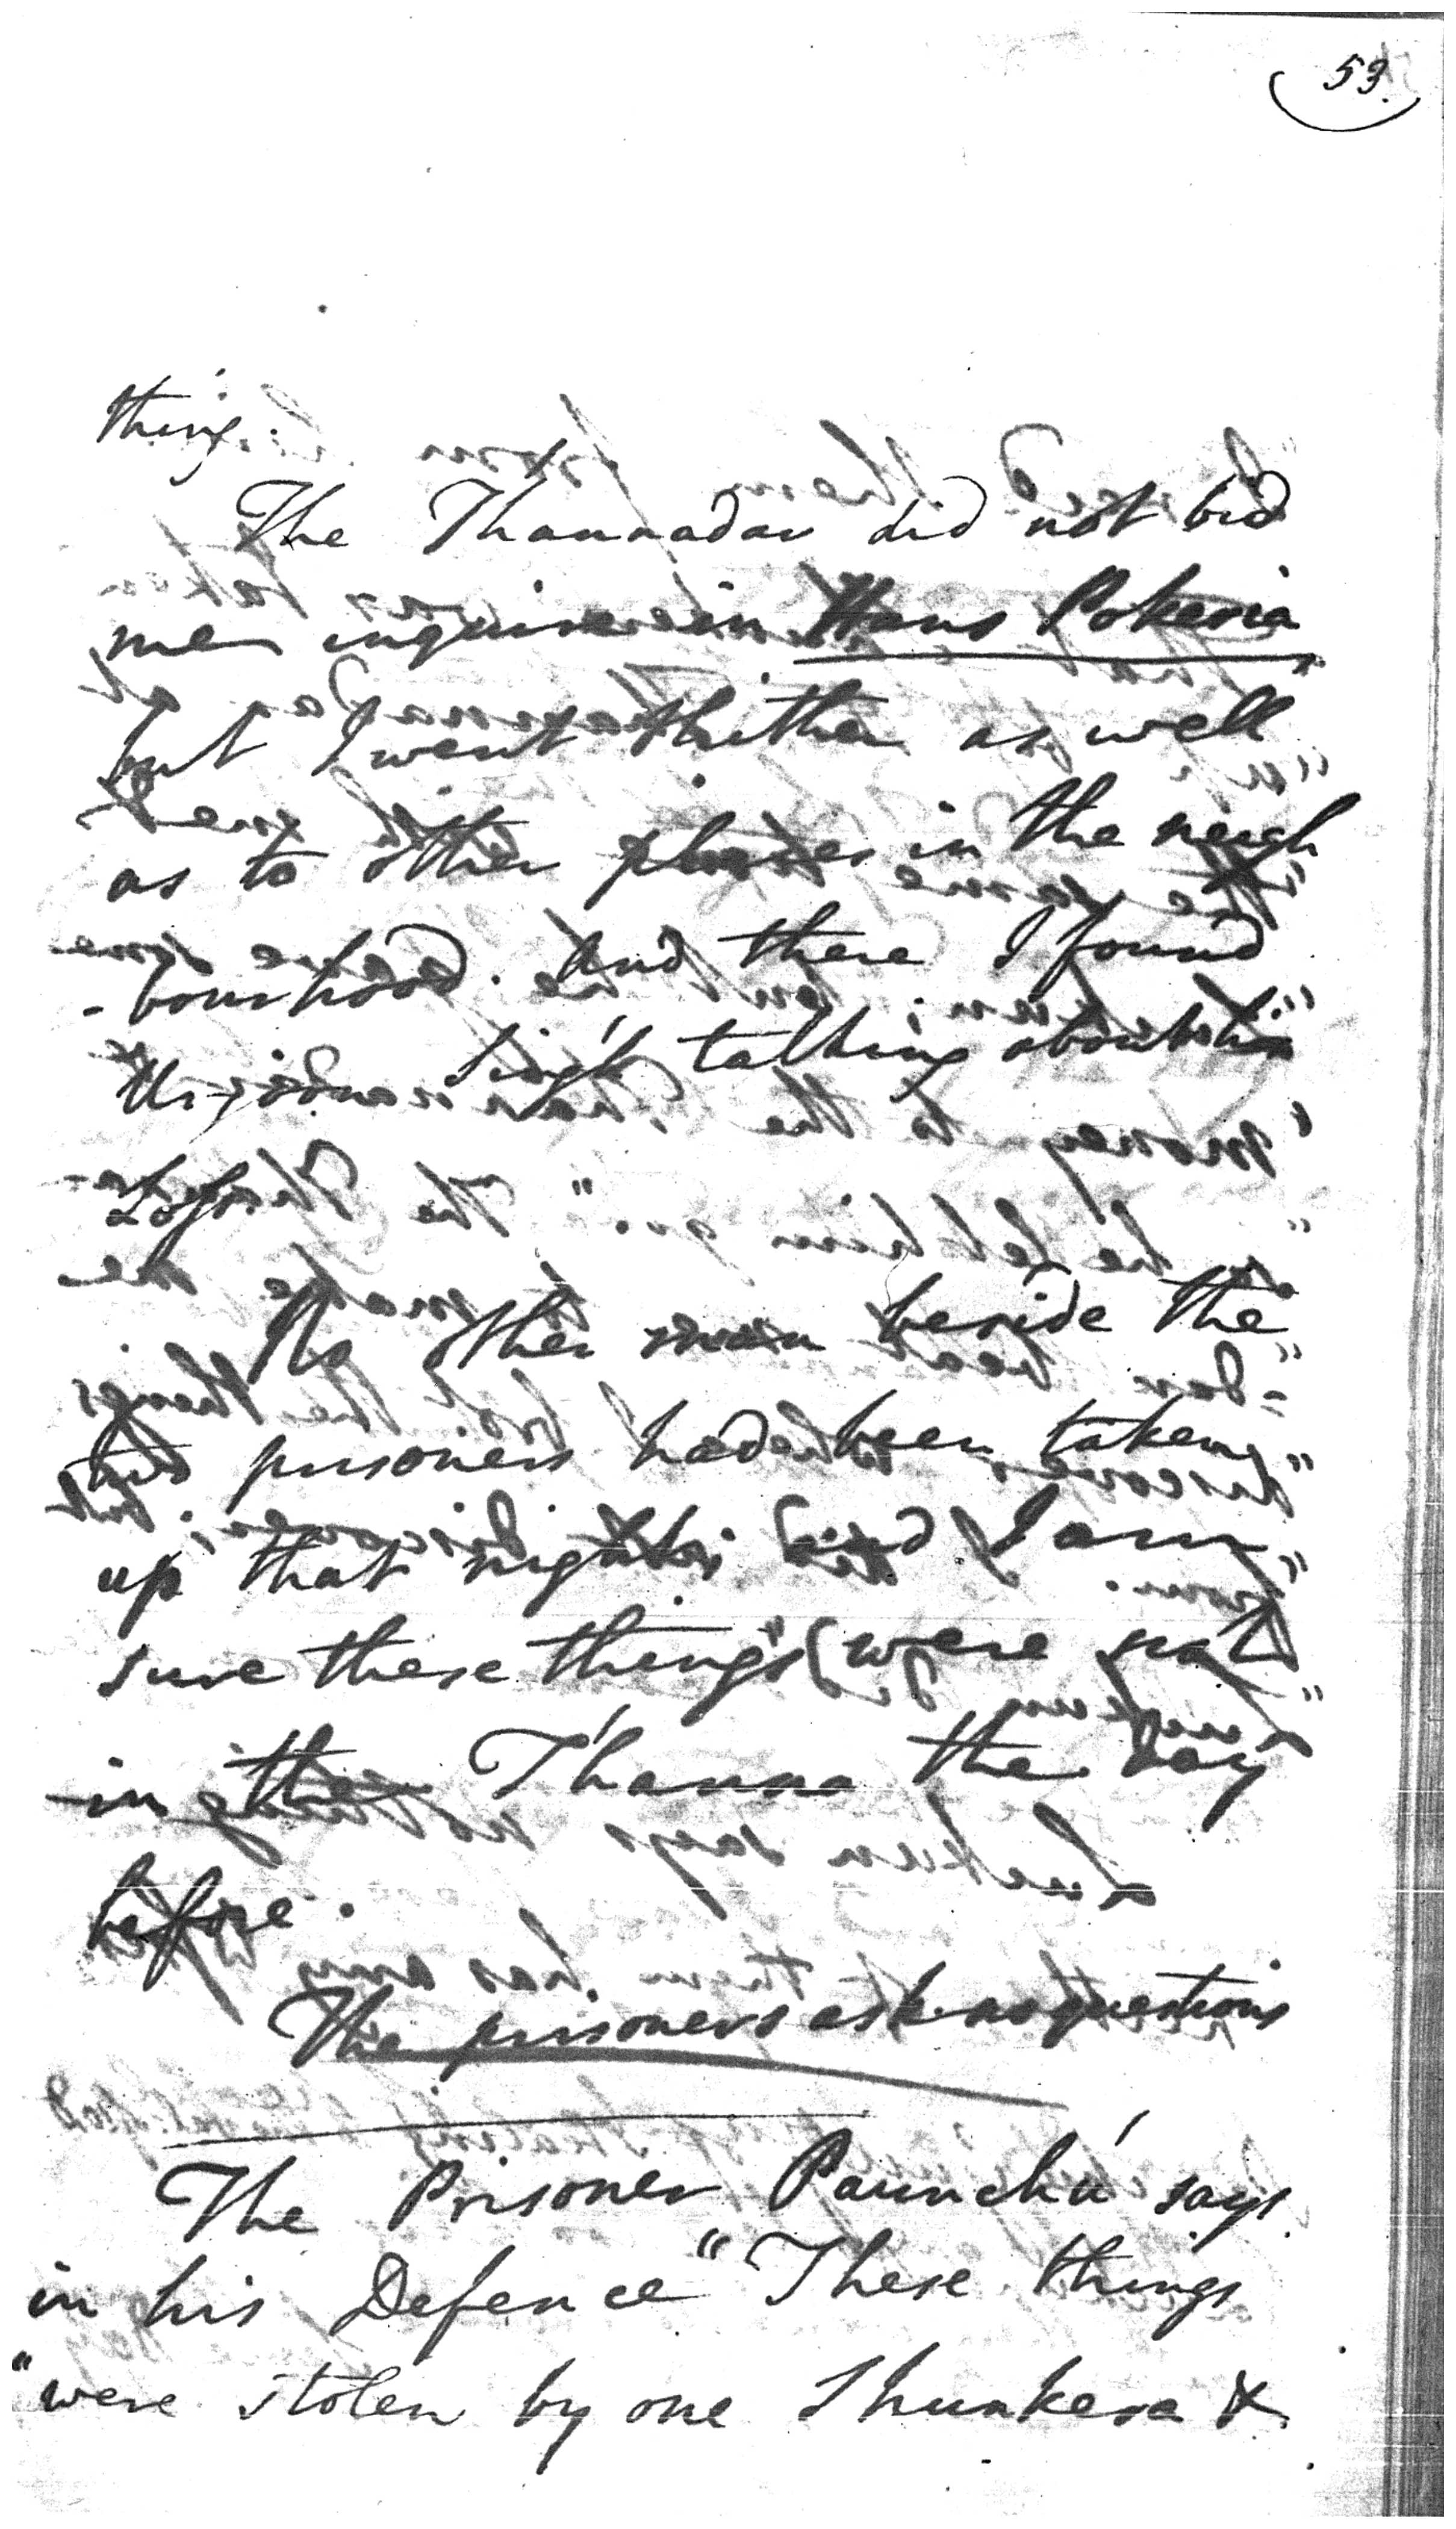 53.
thing.
The Thannadar did not bid
me inquire in Hans Pokeria
but I went thither as well
as to other places in the neigh
-bourhood. And there I found
Urjoon Singh talking about his
Loss.
No other man beside the
two prisoners had been taken
up that night; and I am
sure these things were not
in the Thanna the day
before.
The prisoners ask no questions
The Prisoner Paunchú says
in his Defence "These things
"were stolen by one Shunkera &